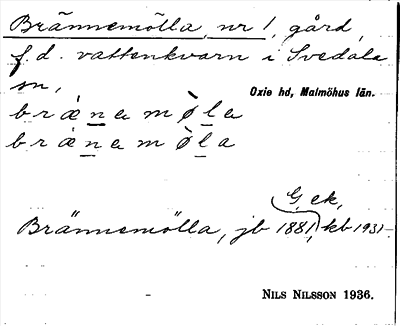 Brännemölla, nr 1, gård,
f.d. vattenkvarn i Svedala
sn,
Oxie hd, Malmöhus län.
bræ̀nemø̀la
brǽnemø̀la
G. ek,
Brännemölla, jb 1881, kb 1931
NILS NILSSON 1936.